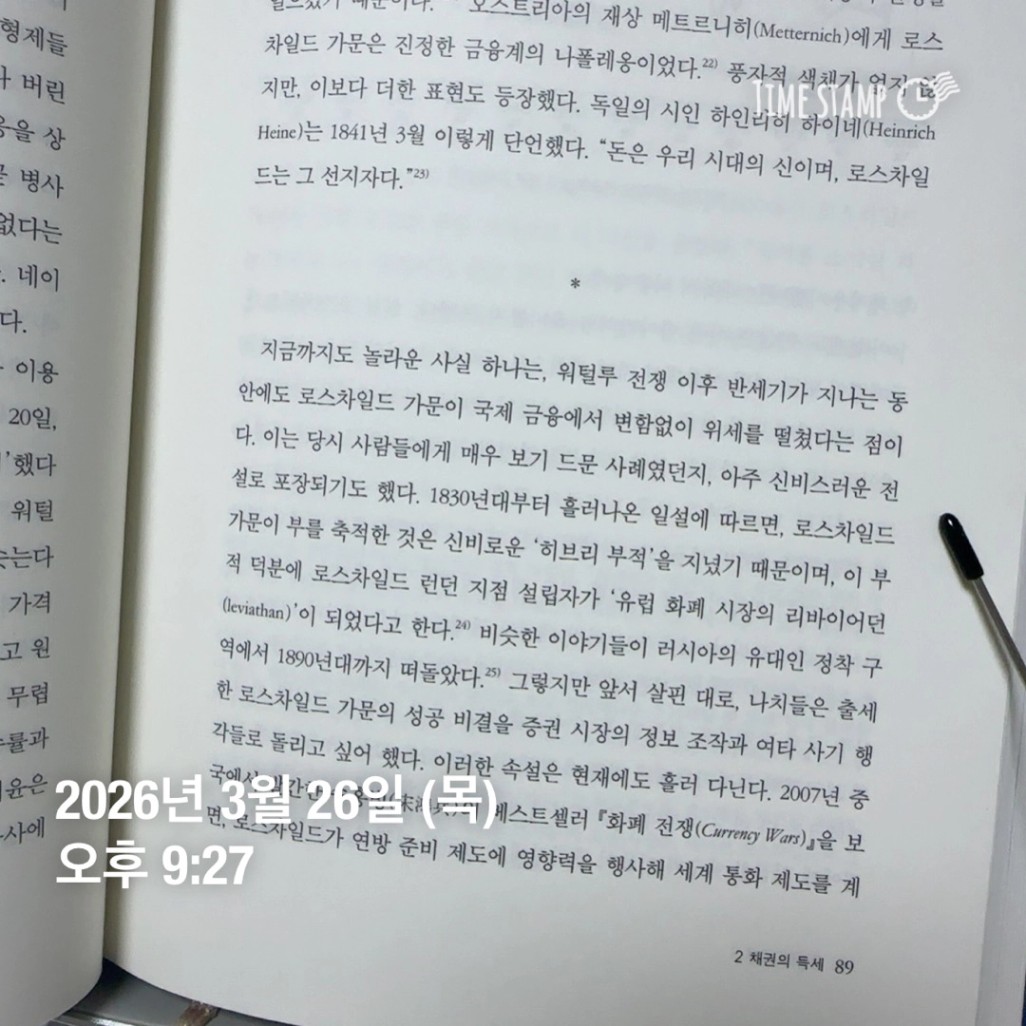 형제들
버린
응을 상
병사
없다는
네이
다.
이용
20일,
했다
워털
가격
고 원
무렵
률과
사에
오스트리아의 재상 메트르니히(Metternich)에게 로스
차일드 가문은 진정한 금융계의 나폴레옹이었다.22) 풍자적 색채가 없지 않
지만, 이보다 더한 표현도 등장했다. 독일의 시인 하인리히 하이네(Heinrich
Heine)는 1841년 3월 이렇게 단언했다. “돈은 우리 시대의 신이며, 로스차일
드는 그 선지자다.”23)
*
지금까지도 놀라운 사실 하나는, 워털루 전쟁 이후 반세기가 지나는 동
안에도 로스차일드 가문이 국제 금융에서 변함없이 위세를 떨쳤다는 점이
다. 이는 당시 사람들에게 매우 보기 드문 사례였던지, 아주 신비스러운 전
설로 포장되기도 했다. 1830년대부터 흘러나온 일설에 따르면, 로스차일드
가문이 부를 축적한 것은 신비로운 ‘히브리 부적’을 지녔기 때문이며, 이 부
적 덕분에 로스차일드 런던 지점 설립자가 ‘유럽 화폐 시장의 리바이어던
(leviathan)’이 되었다고 한다.24) 비슷한 이야기들이 러시아의 유대인 정착 구
역에서 1890년대까지 떠돌았다.25) 그렇지만 앞서 살핀 대로, 나치들은 출세
한 로스차일드 가문의 성공 비결을 증권 시장의 정보 조작과 여타 사기 행
각들로 돌리고 싶어 했다. 이러한 속설은 현재에도 흘러 다닌다. 2007년 중
국에서 베스트셀러 『화폐 전쟁(Currency Wars)』을 보
면, 로스차일드가 연방 준비 제도에 영향력을 행사해 세계 통화 제도를 계
2 채권의 득세 89
TIME STAMP
2026년 3월 26일 (목)
오후 9:27